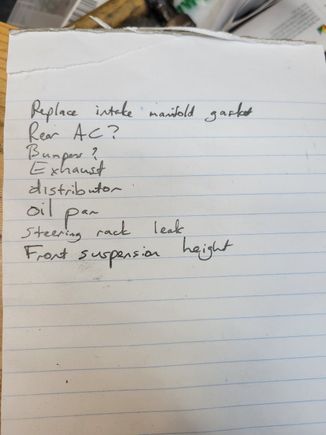 Replace intake manifold gasket
Rear AC?
Bumpers?
Exhaust
distributor
oil pan
Steering rack leak
Front suspension height